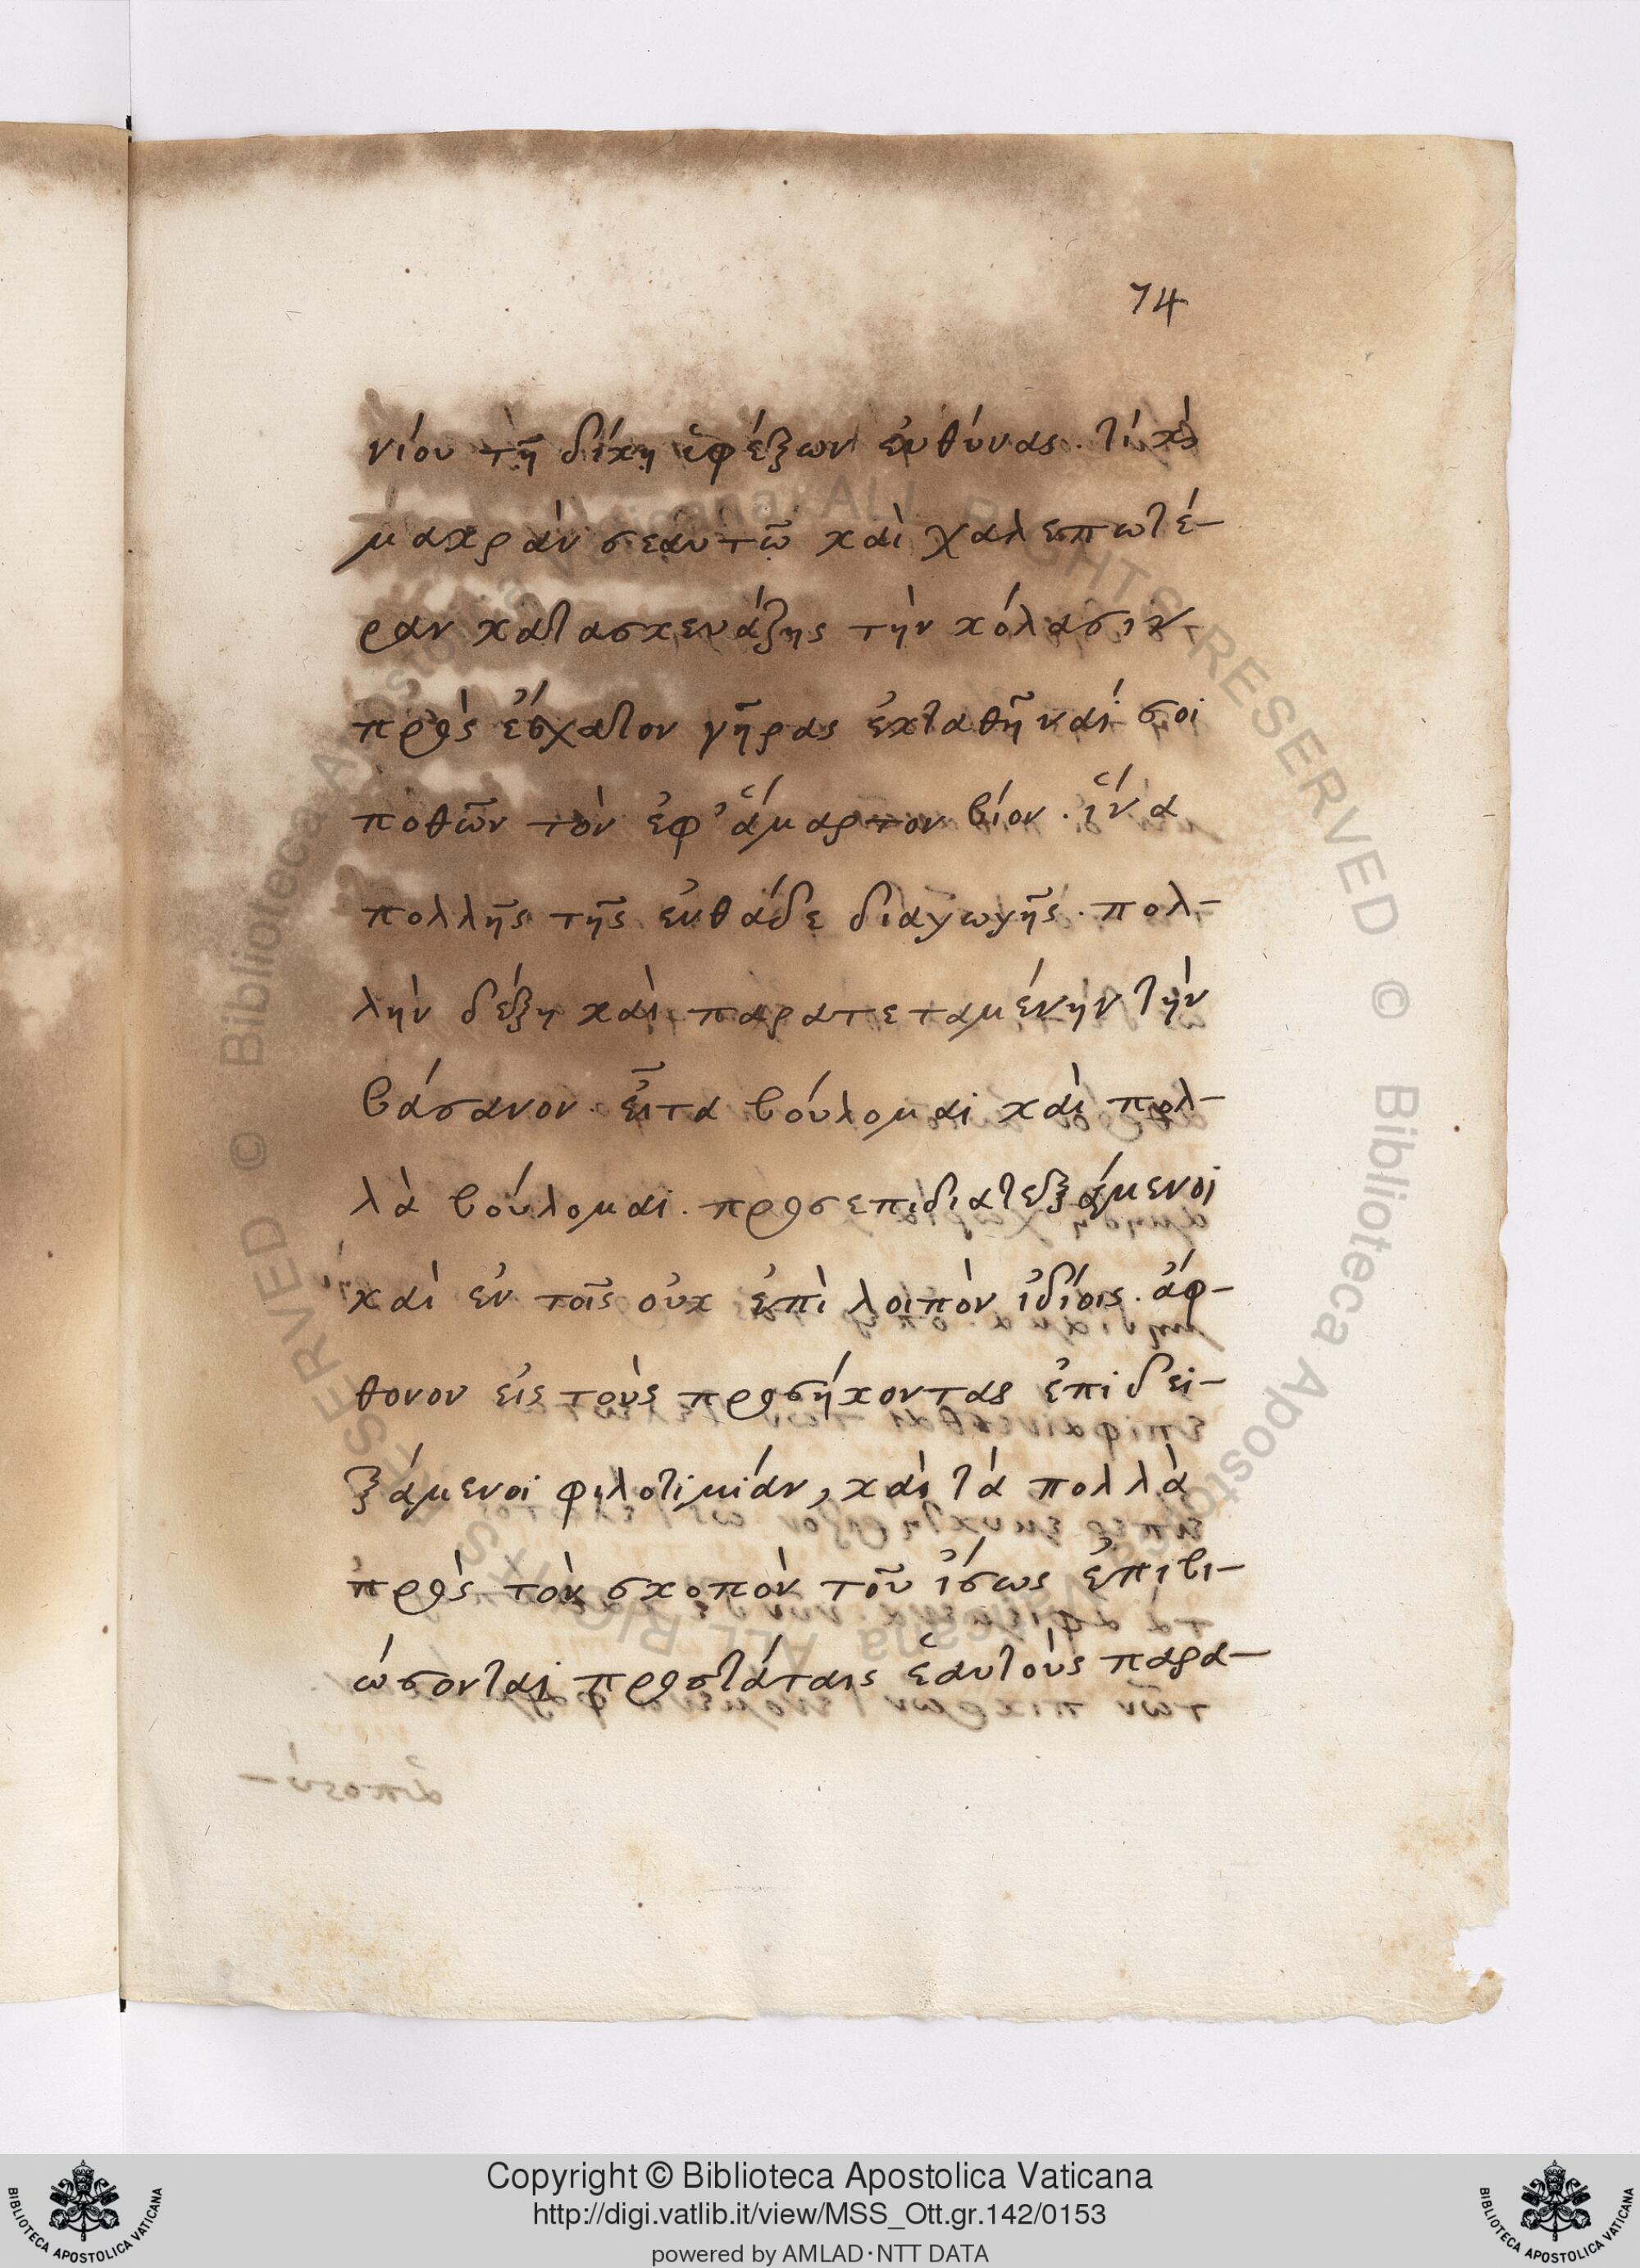 74
νίου τῇ δίκῃ ὑφέξων εὐθύνας. τί καὶ
μακρὰν σεαυτῷ καὶ χαλεπωτέ-
ραν κατασκευάζης τὴν κόλασιν
πρὸς ἔσχατον γῆρας ἐκταθῆναί σοι
ποθῶν τὸν ἐφ' ἅμαρτον βίον. ἵνα
πολλῆς τῆς ἐνθάδε διαγωγῆς. πολ-
λὴν δέξῃ καὶ παρατεταμένην τὴν
βάσανον. εἶτα βούλομαι καὶ πολ-
λὰ βούλομαι. προσεπιδιατεξάμενοι
καὶ ἐν τοῖς οὐκ ἐπὶ λοιπὸν ἰδίοις. ἄφ-
θονον εἰς τοὺς προσήκοντας ἐπιδει-
ξάμενοι φιλοτιμίαν, καὶ τὰ πολλὰ
πρὸς τὸν σκοπὸν τοῦ ἴσως ἐπιβι-
ώσονται προστάταις ἑαυτοὺς παρα-
Copyright © Biblioteca Apostolica Vaticana
http://digi.vatlib.it/view/MSS_Ott.gr.142/0153
powered by AMLAD·NTT DATA
BIBLIOTECA APOSTOLICA VATICANA
BIBLIOTECA APOSTOLICA VATICANA